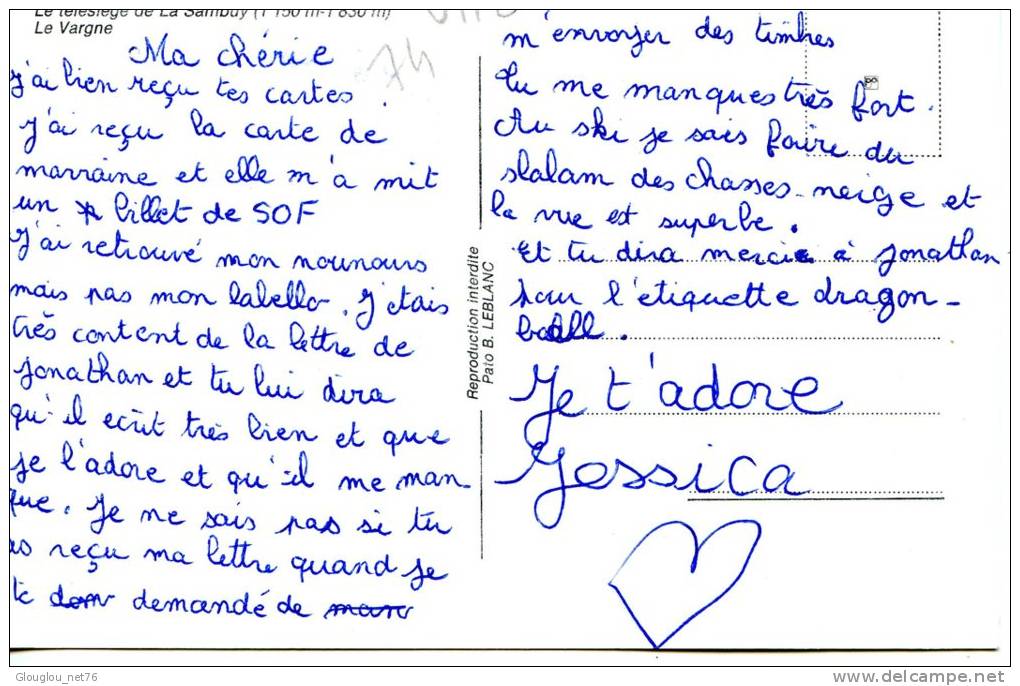 Le télésiège de La Sambuy (1 150 m-1 830 m)
Le Vargne
74
Ma chérie
J'ai bien reçu tes cartes.
J'ai reçu la carte de
marraine et elle m'a mit
un billet de 50F
J'ai retrouvé mon nounours
mais pas mon labello. J'étais
très content de la lettre de
Jonathan et tu lui dira
qu'il ecrit très bien et que
je l'adore et qu'il me man-
que. Je ne sais pas si tu
as reçu ma lettre quand je
te demandé de
m'envoyer des timbres
Tu me manques très fort.
Au ski je sais faire du
slalam des chasses-neige et
la vue est superbe.
Et tu dira merci à Jonathan
pour l'étiquette dragon-
ball.
Je t'adore
Jessica
Reproduction interdite
Pato B. LEBLANC
Glouglou_net76
www.delcampe.net